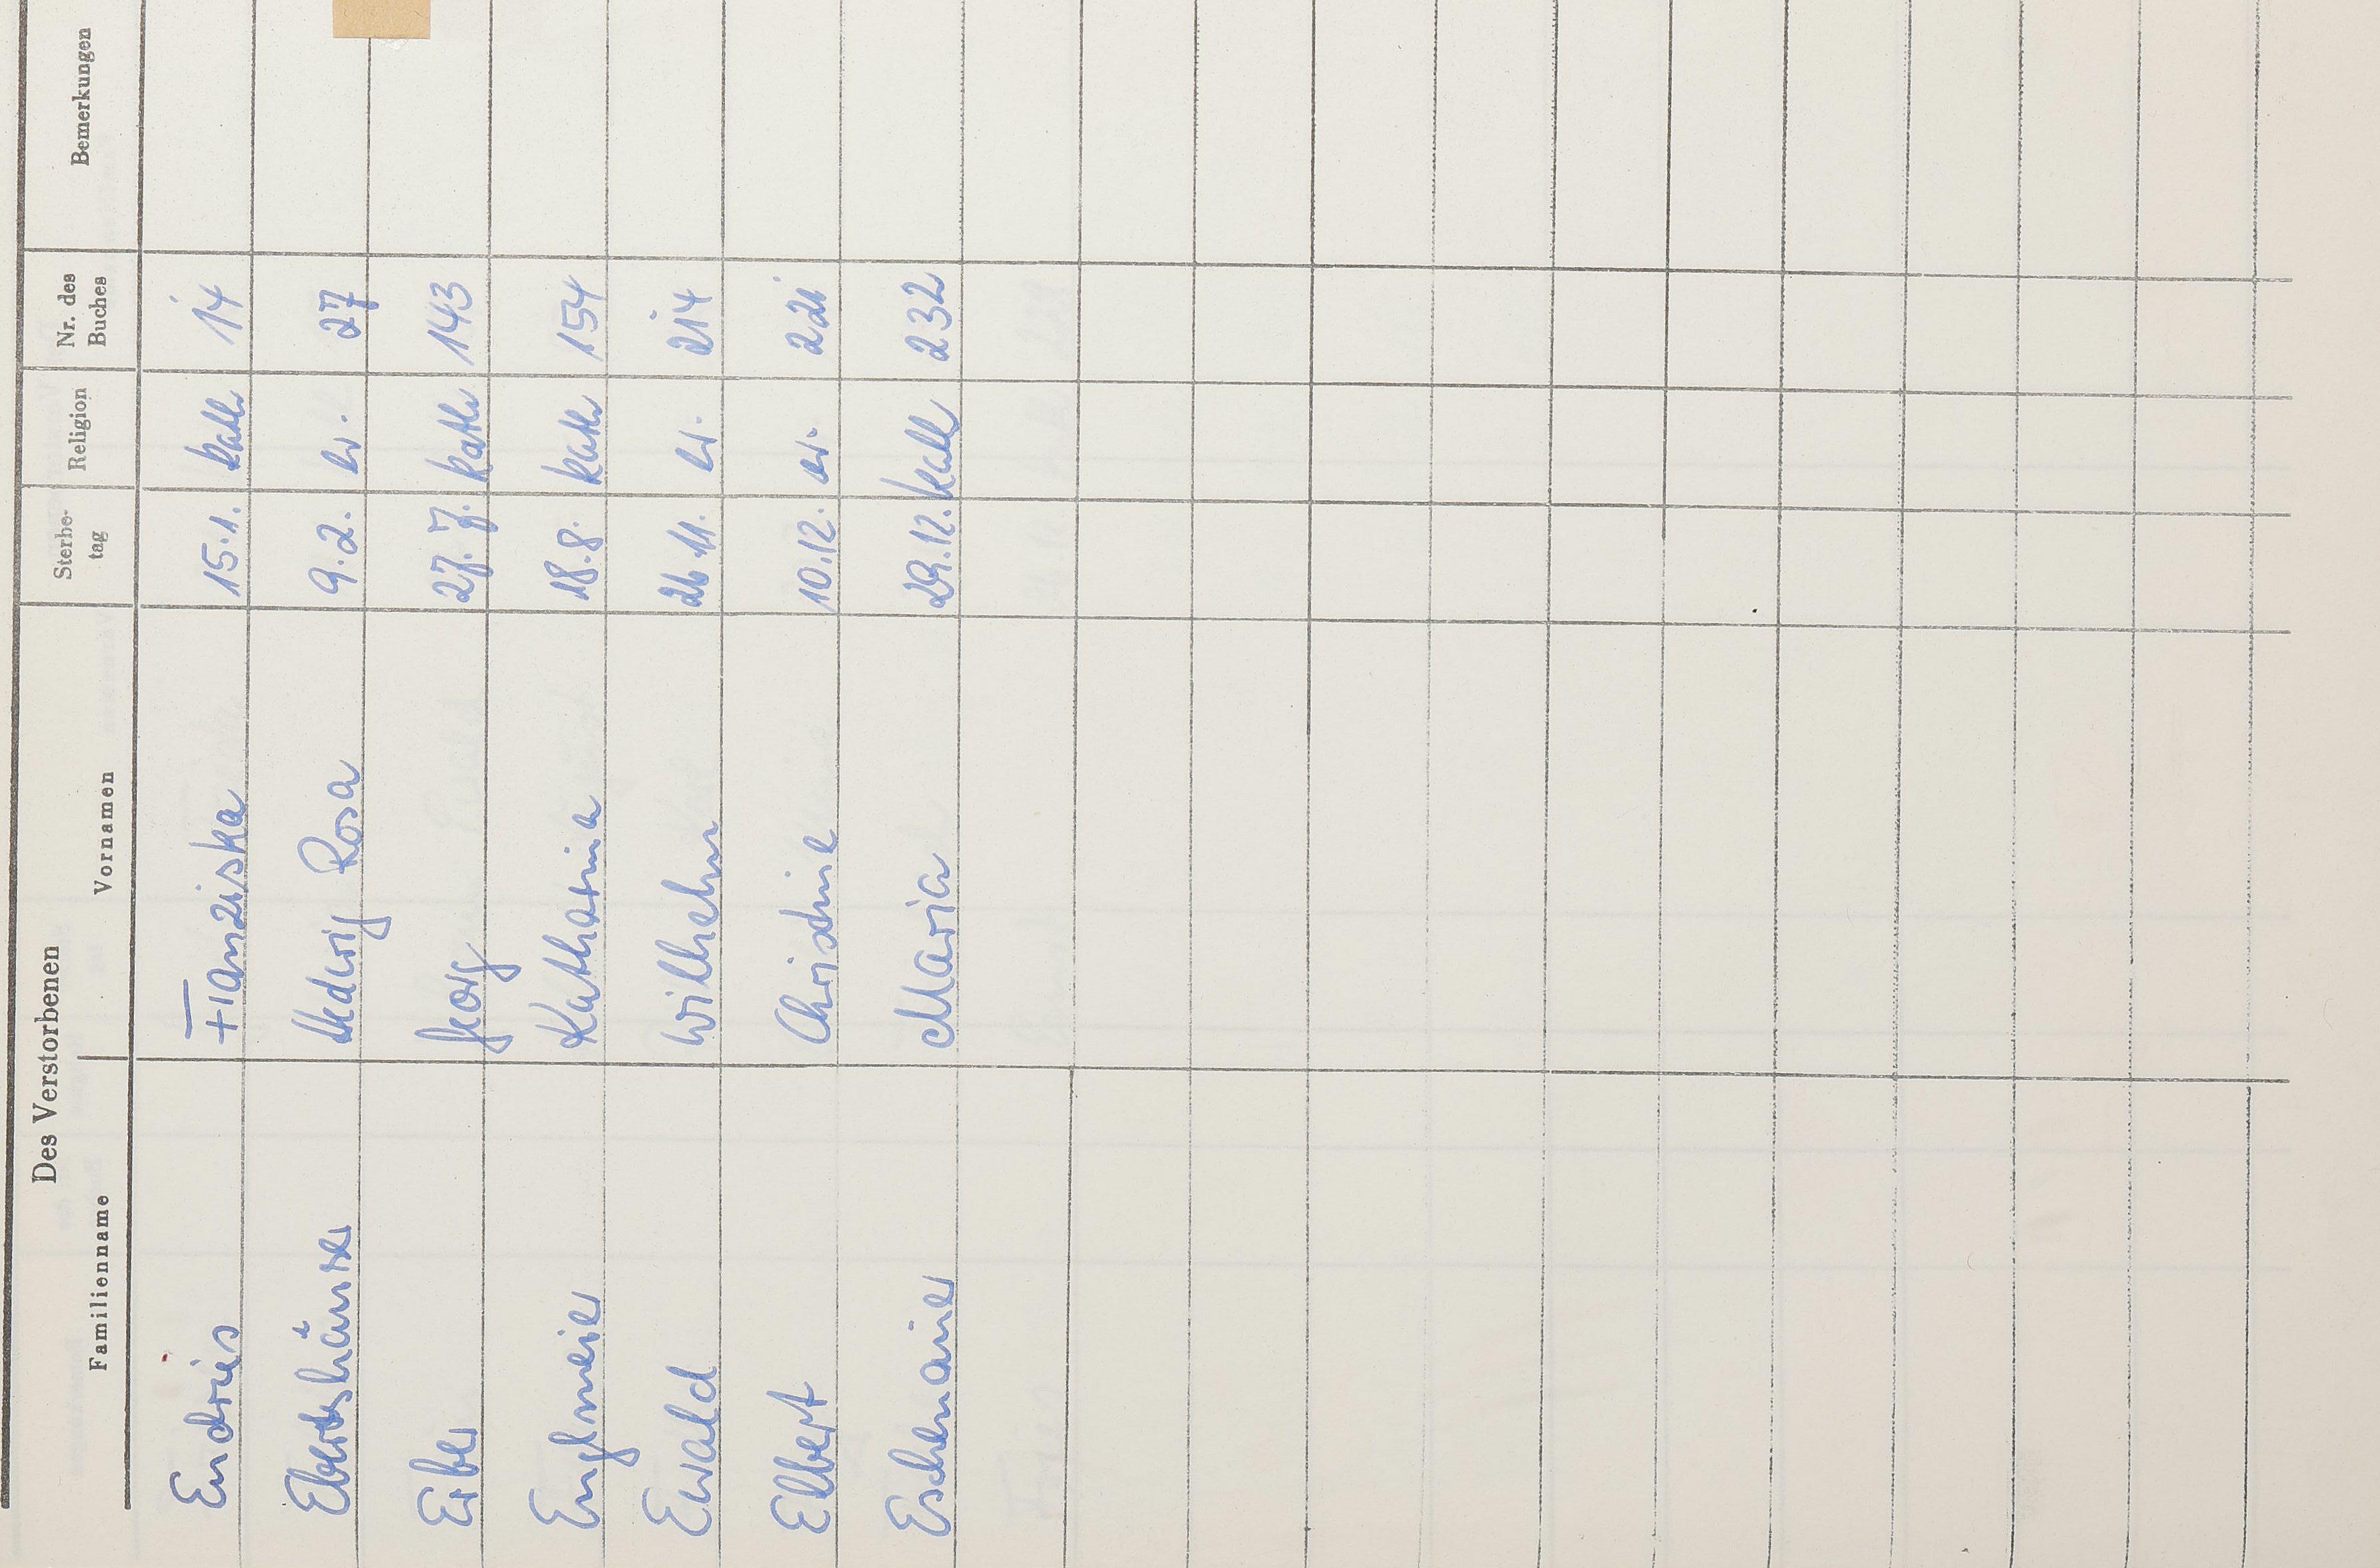 Des Verstorbenen
Familienname Vornamen Sterbe-tag Religion Nr. des Buches Bemerkungen
Endries Franziska 15.1. kath 14
Ebertshäuser Hedwig Rosa 9.2. ev. 27
Erber Georg 27.7. kath 143
Englmeier Katharina 18.8. kath 154
Ewald Wilhelm 26.11. ev. 214
Elbert Christine 10.12. ev. 221
Eschenauer Maria 29.12. kath 232